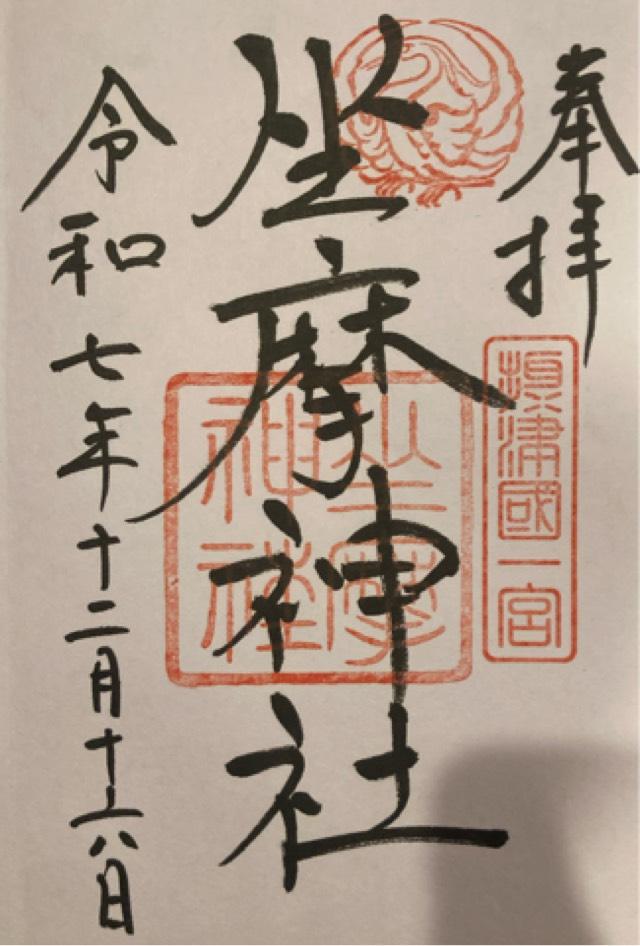 奉拝
摂津國一宮
坐摩神社
坐摩神社
令和七年十二月十六日